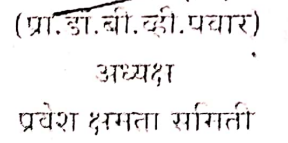 (प्रा.डॉ.बी.व्ही.पवार)
अध्यक्ष
प्रवेश क्षमता समिती